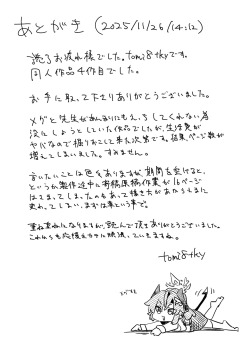 あとがき (2025/11/26/14:12)
読了お疲れ様でした。tomi8tkyです。
同人作品4作目でした。
お手に取って下さりありがとうございました。
メグと先生があんまりにもえっちしてくれない為
次にしようとしていた作品でしたが、生活費が
ヤバなので掘りおこして来た次第です。結果、ページ数が
増えてしまいました。すみません。
言いたいことは色々ありますが、期間を空けると、
というか製作途中に寄稿原稿作業が16ページ
はさまってしまったのもあって描き方があたりまえに
変わってしまい、まずは事という事で。
重ね重ねになりますが、読んで頂きありがとうございました。
これからも応援をさせた絶頂、していきますね。
tomi8tky